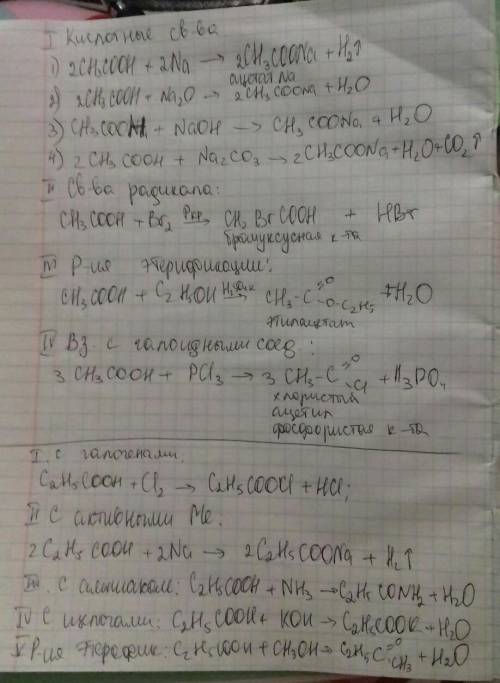 I Кислотные св-ва
1) 2CH₃COOH + 2Na → 2CH₃COONa + H₂↑
ацетат Na
2) 2CH₃COOH + Na₂O → 2CH₃COONa + H₂O
3) CH₃COOH + NaOH → CH₃COONa + H₂O
4) 2CH₃COOH + Na₂CO₃ → 2CH₃COONa + H₂O + CO₂↑
II Св-ва радикала:
CH₃COOH + Br₂ → CH₂BrCOOH + HBr
бромуксусная к-та
III Р-ия этерификации:
CH₃COOH + C₂H₅OH → CH₃-C=O -O-C₂H₅ + H₂O
этилацетат
IV Вз. с галоидными соед:
3CH₃COOH + PCl₃ → 3CH₃-C=O -Cl + H₃PO₄
хлористый
ацетил
фосфористая к-та
I. с галогенами.
C₂H₅COOH + Cl₂ → C₂H₅COOCl + HCl;
II С активными Me:
2C₂H₅COOH + 2Na → 2C₂H₅COONa + H₂↑
III. С аммиаком: C₂H₅COOH + NH₃ → C₂H₅CONH₂ + H₂O
IV С щелочами: C₂H₅COOH + KOH → C₂H₅COOK + H₂O
V Р-ия этерефик: C₂H₅COOH + CH₃OH → C₂H₅C=O -CH₃ + H₂O